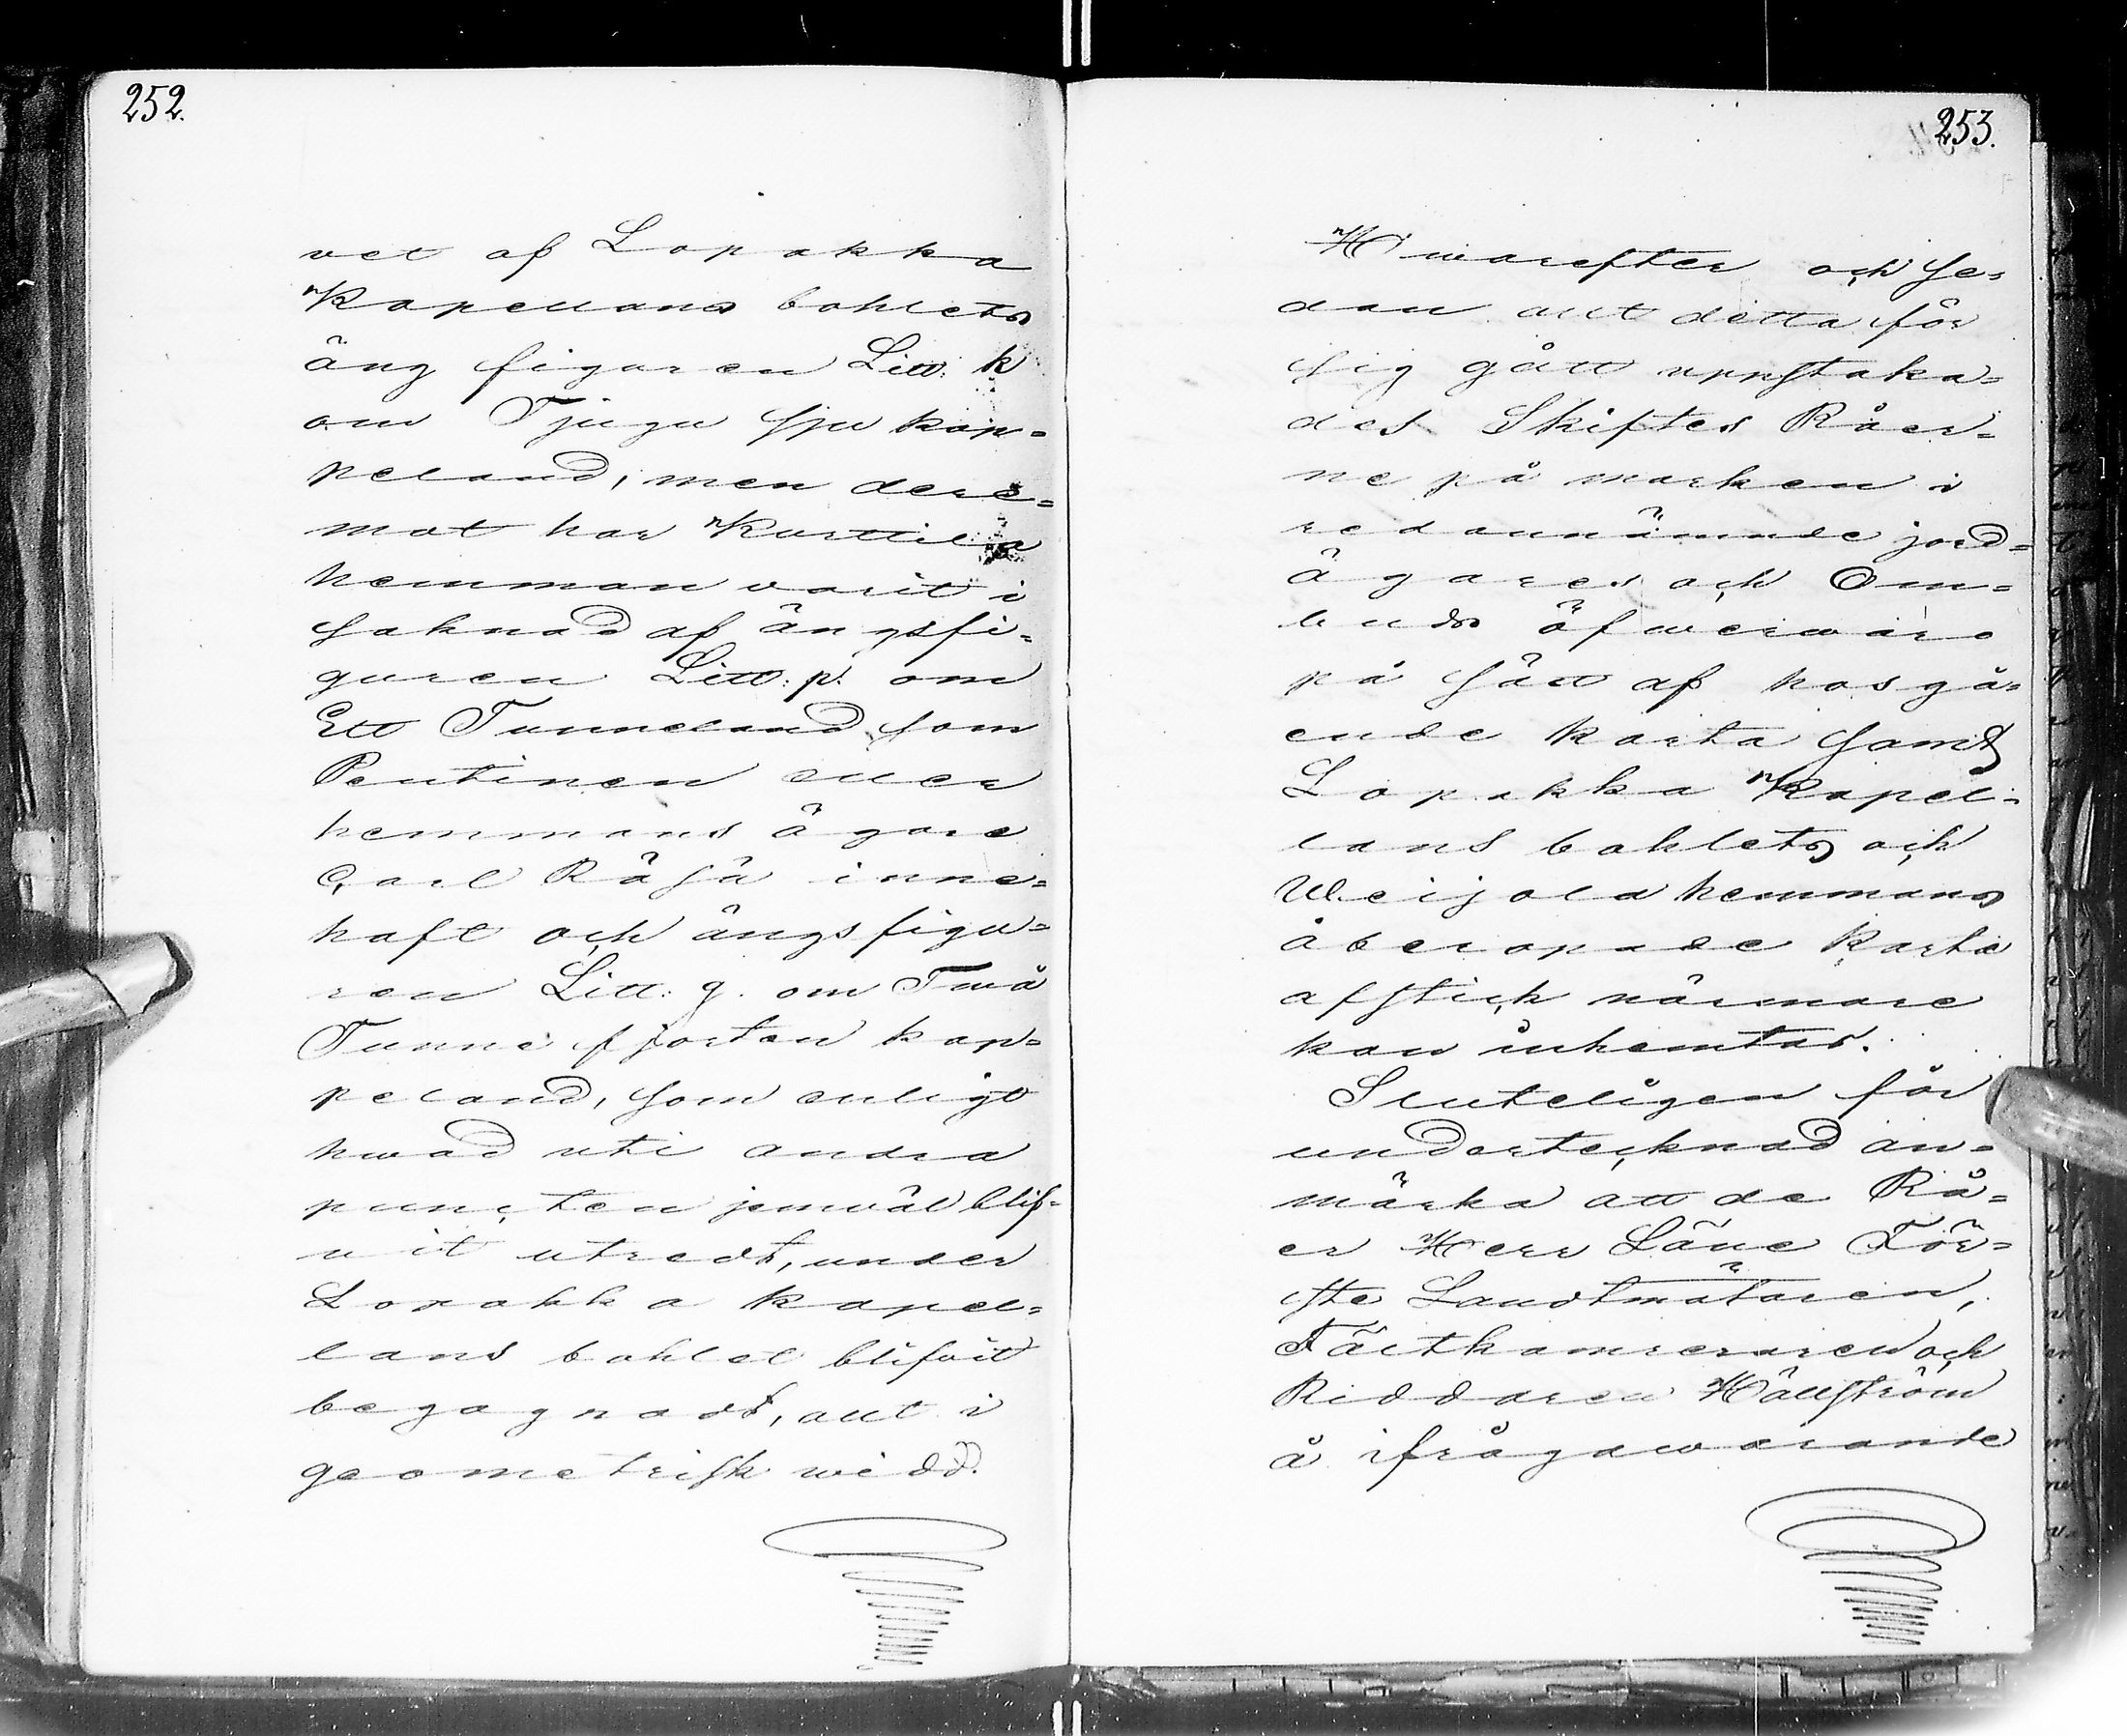 252.
vet af Lopakka
Kapellans bohlets
äng figuren Litt: k
om Tjugu sju kap=
peland, men dere=
mot har Kurttila
hemman varit i
saknad af ängsfi=
guren Litt: p. om
Ett Tunneland som
Pentinen eller
hemmans ägare
Carl Räsä inne=
haft och ängs figu=
ren Litt: q. om Twå
Tunne fjorton kap=
peland, som enligt
hwad uti andra
puncten jemväl blif=
vit utredt, under
Lopakka kapel=
lans bohlet blifvit
begagnadt, allt i
geometrisk widd.
253.
Hwarefter och se=
dan allt detta för
sig gått uppstaka=
des Skiftes Råer=
ne på marken i
redannämnde jord=
ägares och Om=
buds öfwerwaro
på sätt af hosgå=
ende karta samt
Lopakka Kapel=
lans bohlets och
Weijola hemmans
åberopade Karte
afstick närmare
kan inhemtas.
Sluteligen får
undertecknad an=
märka att de Rå=
er Herr Läne För=
ste Landtmätaren,
Fältkamreraren och
Riddaren Hällström
å ifrågawarande